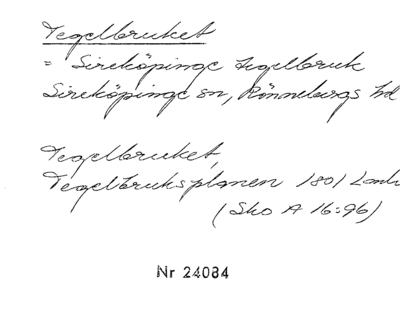 Tegelbruket
= Sireköpinge tegelbruk
Sireköpinge sn, Rönnebergs hd
Tegelbruket,
Tegelbruksplanen 1801
(Sko A 16:96)
Nr 24084